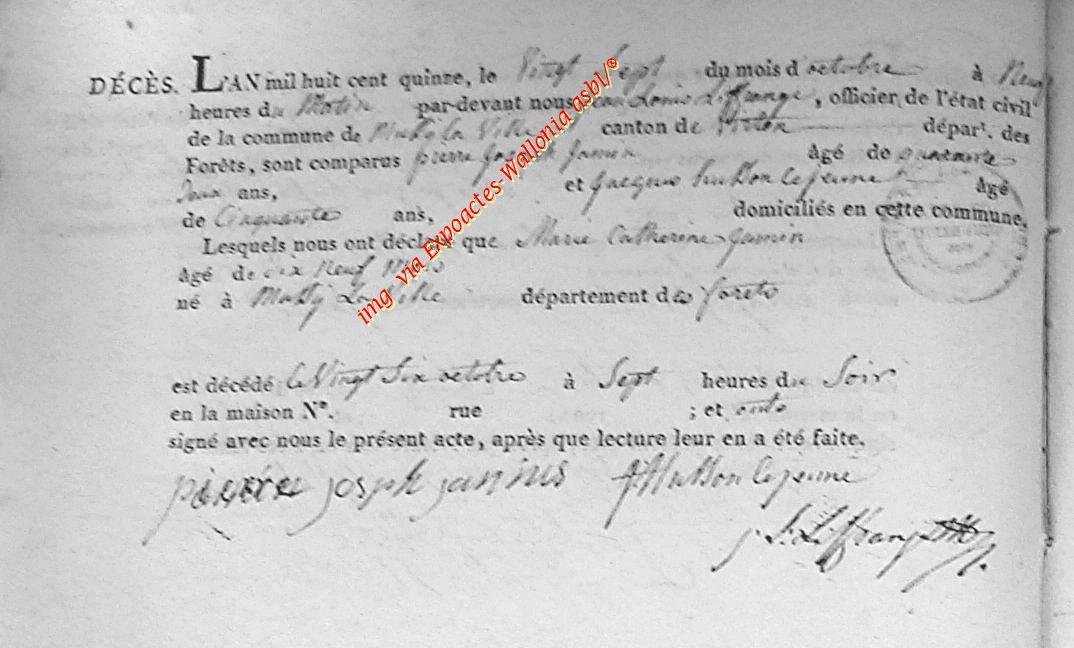 DÉCÈS. L'AN mil huit cent quinze, le Vingt Sept du mois d'octobre à Neuf
heures du Matin par-devant nous jean Louis Liffrange, officier de l'état civil
de la commune de Mussy la Ville canton de Virton dépar.t des
Forêts, sont comparus pierre Joseph Jamin âgé de quarante
deux ans, et Jacques husson Lejeune âgé
de Cinquante ans, domiciliés en cette commune,
Lesquels nous ont déclaré que Marie Catherine Jamin
âgé de dix Neuf Mois
né à Mussy La Ville département des forets
est décédé le Vingt Six octobre à Sept heures du Soir
en la maison N°. rue ; et onts
signé avec nous le présent acte, après que lecture leur en a été faite.
pierre josph jamins JHusson lejeune
j. L. Liffrange
img via Expoactes-Wallonia asbl/®